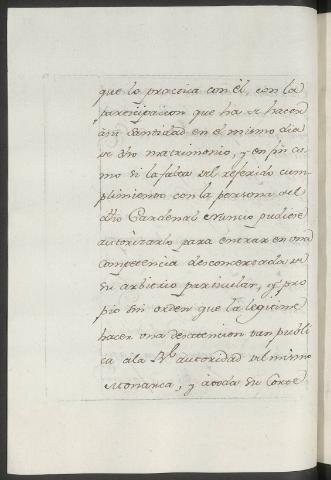 que lo practica con él, con la
participacion que ha de hacer
a su Santidad en el mismo dia
de dho matrimonio, y en fin co-
mo si la falta del referido cum-
plimiento con la persona del
dho Cardenal Nuncio pudiese
autorizarlo para entrar en una
competencia desconcertada de
su arbitrio particular, y pro-
pio sin orden que la legitime
hacer una desatencion tan publi-
ca a la Rl autoridad del mismo
Monarca, y a toda su Corte